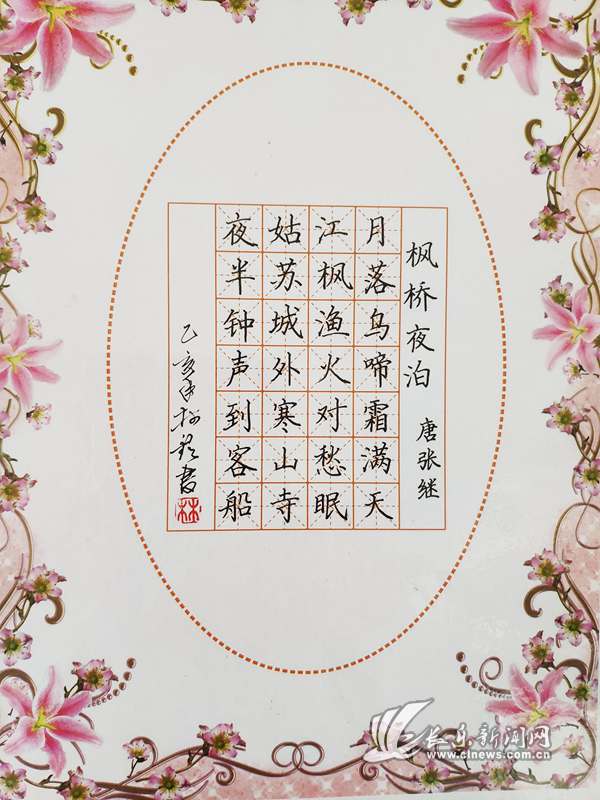 枫桥夜泊
唐张继
月落鸟啼霜满天
江枫渔火对愁眠
姑苏城外寒山寺
夜半钟声到客船
乙亥年 书
林
长乐新闻网
www.clnews.com.cn